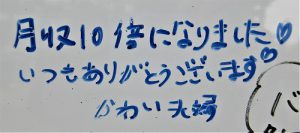 月収10倍になりました♡
いつもありがとうございます♡
かわい夫婦